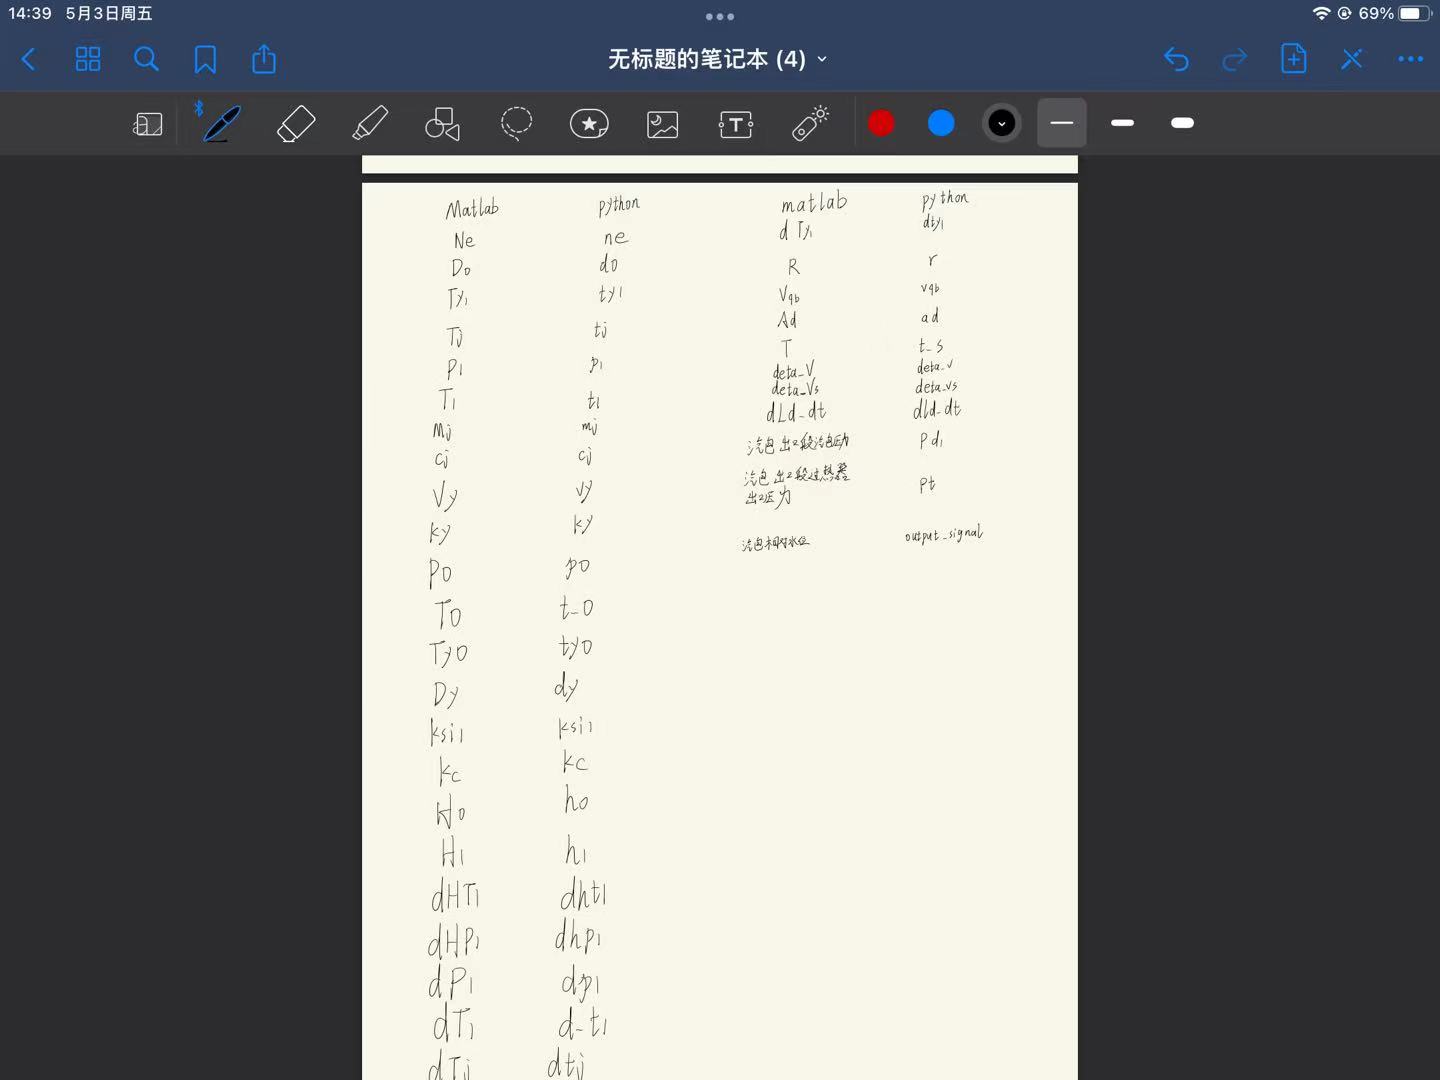 14:39 5月3日周五
69%
无标题的笔记本 (4)
Matlab python
Ne ne
Do do
Ty1 ty1
Tj tj
P1 p1
T1 t1
Mj mj
Cj cj
Vy vy
ky ky
P0 p0
T0 t_0
Ty0 ty0
Dy dy
ksi1 ksi1
kc kc
Ho ho
H1 h1
dHT1 dht1
dHP1 dhp1
dP1 dp1
dT1 d_t1
dTj dtj
matlab python
dTy1 dty1
R r
Vqb vqb
Ad ad
T t_s
deta_V deta_v
deta_Vs deta_vs
dLd_dt dld_dt
汽包出口段汽包压力 Pd1
汽包出口段过热器 pt
出口压力
汽包相对水位 output_signal